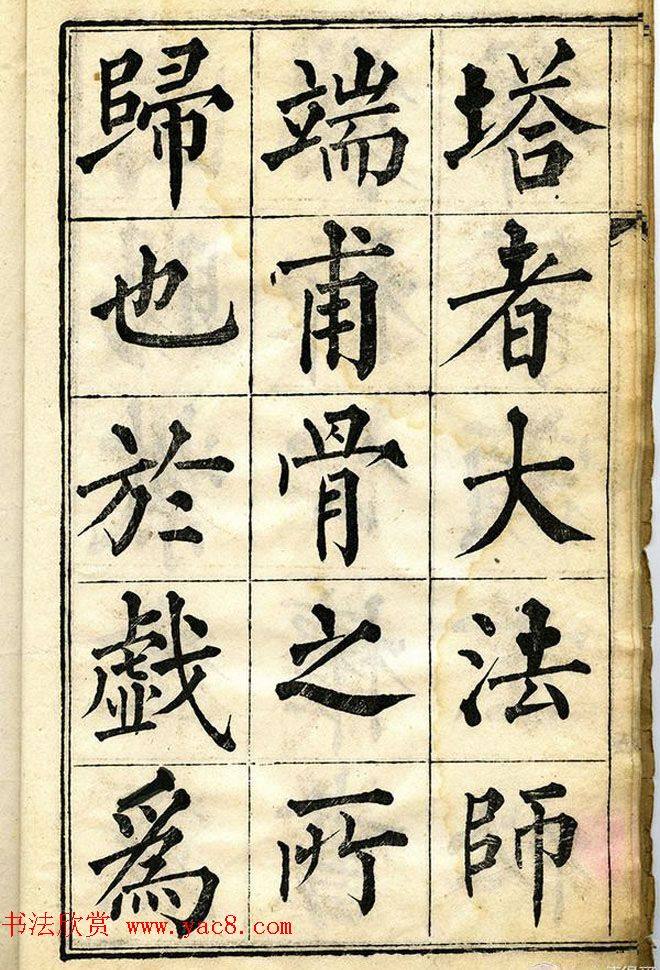 塔者大法師
端甫骨之所
歸也於戯為
书法欣赏 www.yac8.com